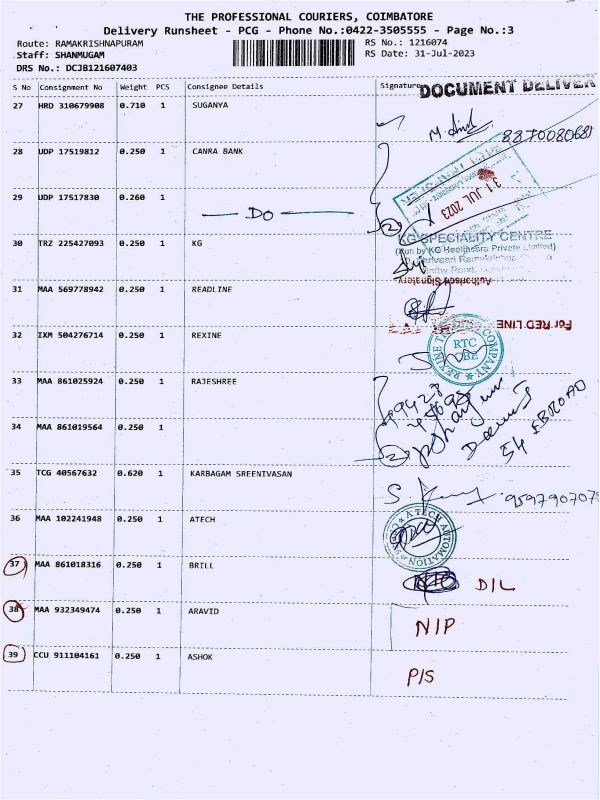 THE PROFESSIONAL COURIERS, COIMBATORE
Delivery Runsheet - PCG - Phone No.:0422-3505555 - Page No.:3
Route: RAMAKRISHNAPURAM RS No.: 1216074
Staff: SHANMUGAM RS Date: 31-Jul-2023
DRS No.: DCJB121607403
S No Consignment No Weight PCS Consignee Details Signature DOCUMENT DELIVER
27 HRD 310679908 0.710 1 SUGANYA
8870080681
28 UDP 17519812 0.250 1 CANRA BANK
31 JUL 2023
29 UDP 17517830 0.260 1
DO
2
30 TRZ 225427093 0.250 1 KG
KG SPECIALITY CENTRE
(Run by KG Healthcare Private Limited)
Authorised Signatory
31 MAA 569778942 0.250 1 READLINE
For RED LINE
32 IXM 504276714 0.250 1 REXINE
RTC
CBE
COMPANY
33 MAA 861025924 0.250 1 RAJESHREE
34 MAA 861019564 0.250 1
2
35 TCG 40567632 0.620 1 KARBAGAM SREENIVASAN
36 MAA 102241948 0.250 1 ATECH
ATECH AUTOMATION
37 MAA 861018316 0.250 1 BRILL
DIL
38 MAA 932349474 0.250 1 ARAVID
NIP
39 CCU 911104161 0.250 1 ASHOK
P/S